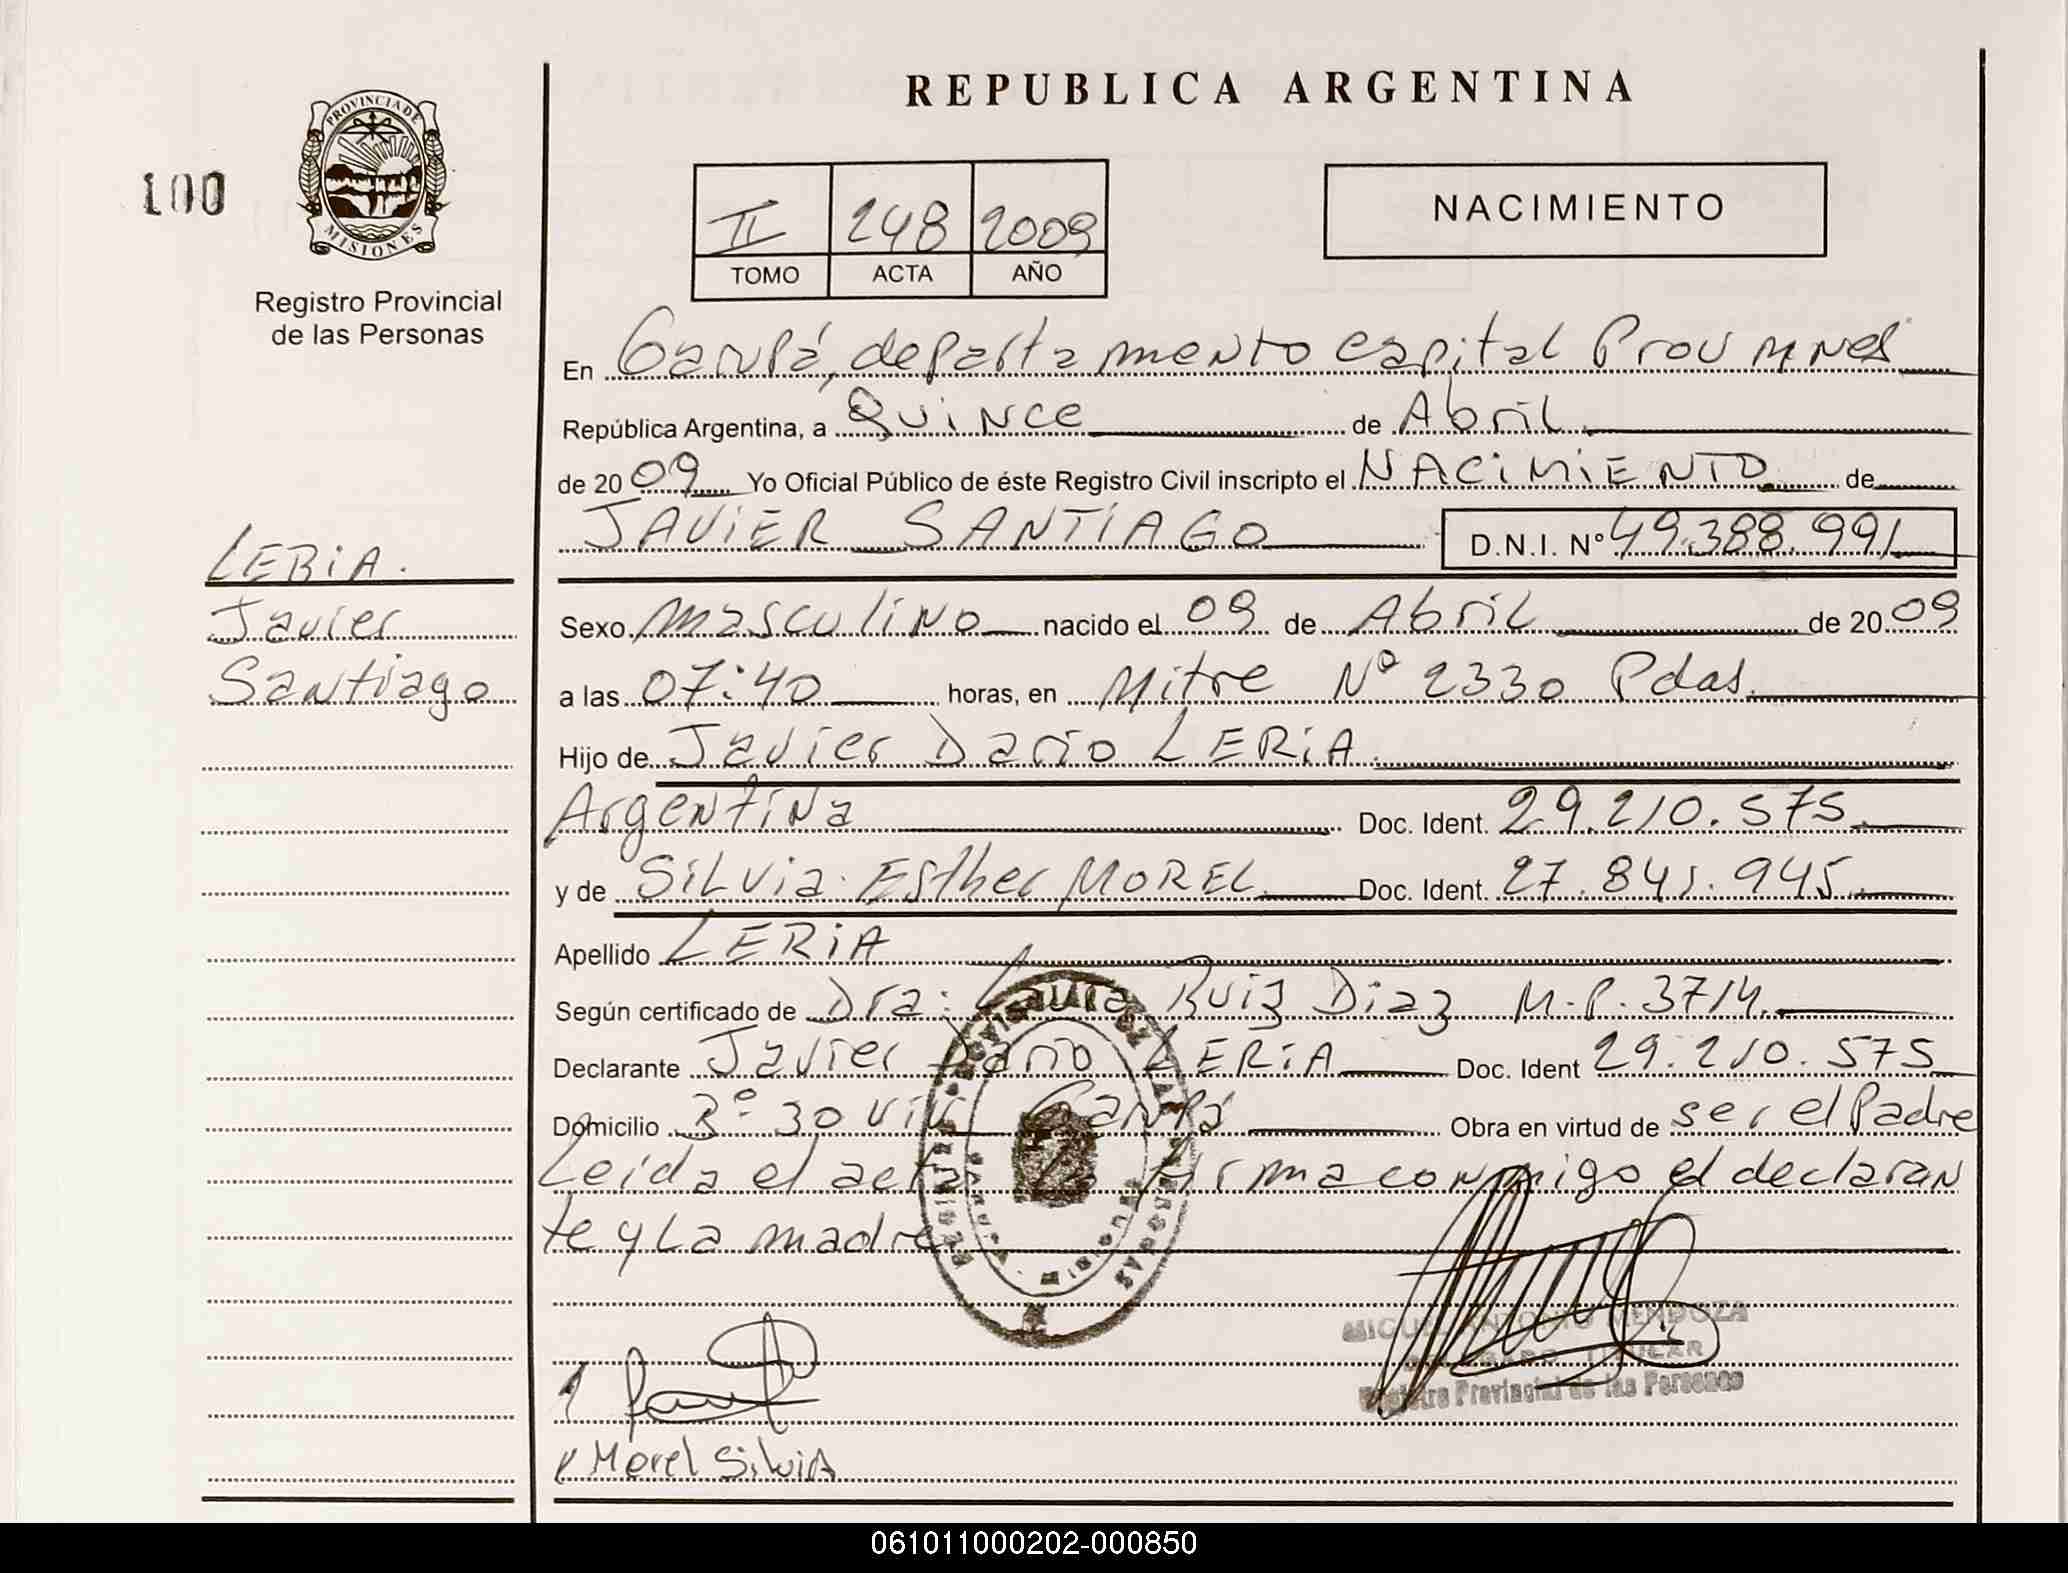 REPUBLICA ARGENTINA
PROVINCIA DE
MISIONES
100
Registro Provincial
de las Personas
II 248 2009
TOMO ACTA AÑO
NACIMIENTO
En Garupá, departamento capital Prov Mnes
República Argentina, a Quince de Abril
de 2009 Yo Oficial Público de éste Registro Civil inscripto el NACIMIENTO de
JAVIER SANTIAGO D.N.I. Nº 49.388.991
LERIA.
Javier
Santiago
Sexo masculino nacido el 09 de Abril de 2009
a las 07:40 horas, en Mitre Nº 2330 Pdas.
Hijo de Javier Dario LERIA.
Argentina Doc. Ident. 29.210.575
y de Silvia Esther MOREL Doc. Ident. 27.841.945
Apellido LERIA
Según certificado de Dra: Laura Ruiz Diaz M.P. 3714
Declarante Javier Dario LERIA Doc. Ident 29.210.575
Domicilio Bº 30 viv Garupá Obra en virtud de ser el Padre
Leida el acta firma conmigo el declaran
te y La madre
MIGUEL ANTONIO MENDOZA
DELEGADO TITULAR
Registro Provincial de las Personas
Morel Silvia
061011000202-000850